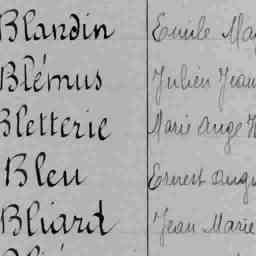 Blandin Emile
Blémus Julien Jean
Bletterie Marie Ange
Bleu Ernest
Bliard Jean Marie